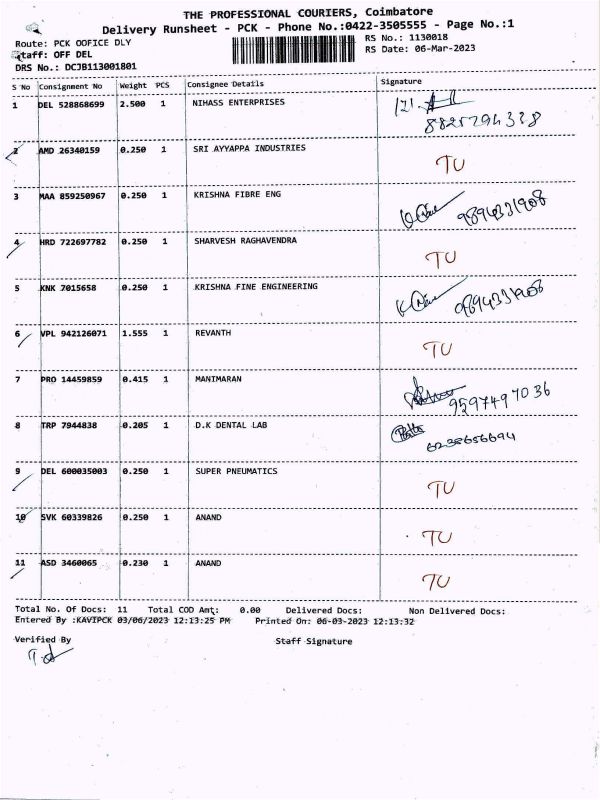 THE PROFESSIONAL COURIERS, Coimbatore
Delivery Runsheet - PCK - Phone No.:0422-3505555 - Page No.:1
Route: PCK OOFICE DLY RS No.: 1130018
Staff: OFF DEL RS Date: 06-Mar-2023
DRS No.: DCJB113001801
S No Consignment No Weight PCS Consignee Details Signature
1 DEL 528868699 2.500 1 NIHASS ENTERPRISES
2 AMD 26340159 0.250 1 SRI AYYAPPA INDUSTRIES TU
3 MAA 859250967 0.250 1 KRISHNA FIBRE ENG 9894331908
4 HRD 722697782 0.250 1 SHARVESH RAGHAVENDRA TU
5 KNK 7015658 0.250 1 KRISHNA FINE ENGINEERING 9894331908
6 VPL 942126071 1.555 1 REVANTH TU
7 PRO 14459859 0.415 1 MANIMARAN 9597497036
8 TRP 7944838 0.205 1 D.K DENTAL LAB 6238656694
9 DEL 600035003 0.250 1 SUPER PNEUMATICS TU
10 SVK 60339826 0.250 1 ANAND TU
11 ASD 3460065 0.230 1 ANAND TU
Total No. Of Docs: 11 Total COD Amt: 0.00 Delivered Docs: Non Delivered Docs:
Entered By :KAVIPCK 03/06/2023 12:13:25 PM Printed On: 06-03-2023 12:13:32
Verified By Staff Signature